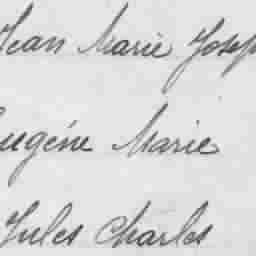 Jean Marie Josep
Eugéne Marie
Jules Charles